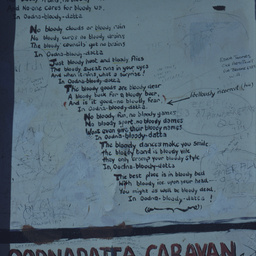 And no-one cares for bloody us
In Oodna-bloody-datta
No bloody clouds or bloody rain
No bloody curbs no bloody drains
The bloody council's got no brains
In Oodna-bloody-datta.
Just bloody dust and bloody flies
The bloody sweat runs in your eyes
And when it rains, what a surprise!
In Oodna-bloody-datta.
The bloody goods are bloody dear
A bloody buck for a bloody beer
And is it good-no bloody fear
In Oodna-bloody-datta.
No bloody fun, no bloody games
No bloody sport, no bloody dames
Won't even give their bloody names
In Oodna-bloody-datta.
The bloody dances make you smile
The bloody band is bloody vile
they only cramp your bloody style
In Oodna-bloody-datta.
The best place is in bloody bed
With bloody ice upon your head
You might as well be bloody dead,
In Oodna-bloody-datta!
OODNADATTA CARAVAN